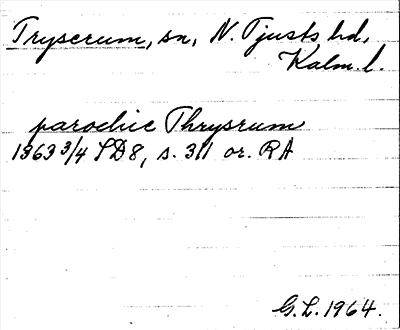 Tryserum, sn, N. Tjusts hd,
Kalm. l.
parochie Thrysrum
1363 3/4 SD 8, s. 311 or. RA
G.L. 1964.